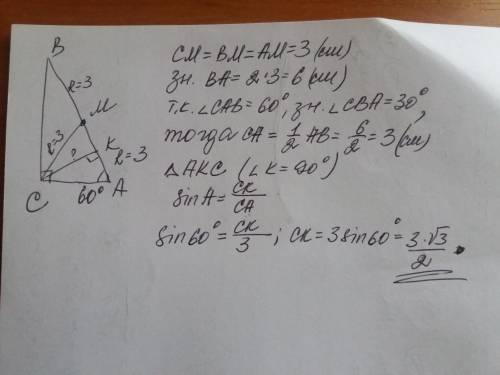 B
R=3
M
R=3
?
K
R=3
C
60°
A
CM=BM=AM=3 (см)
зн. BA=2·3=6 (см)
т.к. ∠CAB=60°, зн. ∠CBA=30°,
тогда CA=1/2 AB=6/2=3 (см)
△AKC (∠K=90°)
sin A=CK/CA
sin 60°=CK/3; CK=3 sin 60°=3·√3/2.